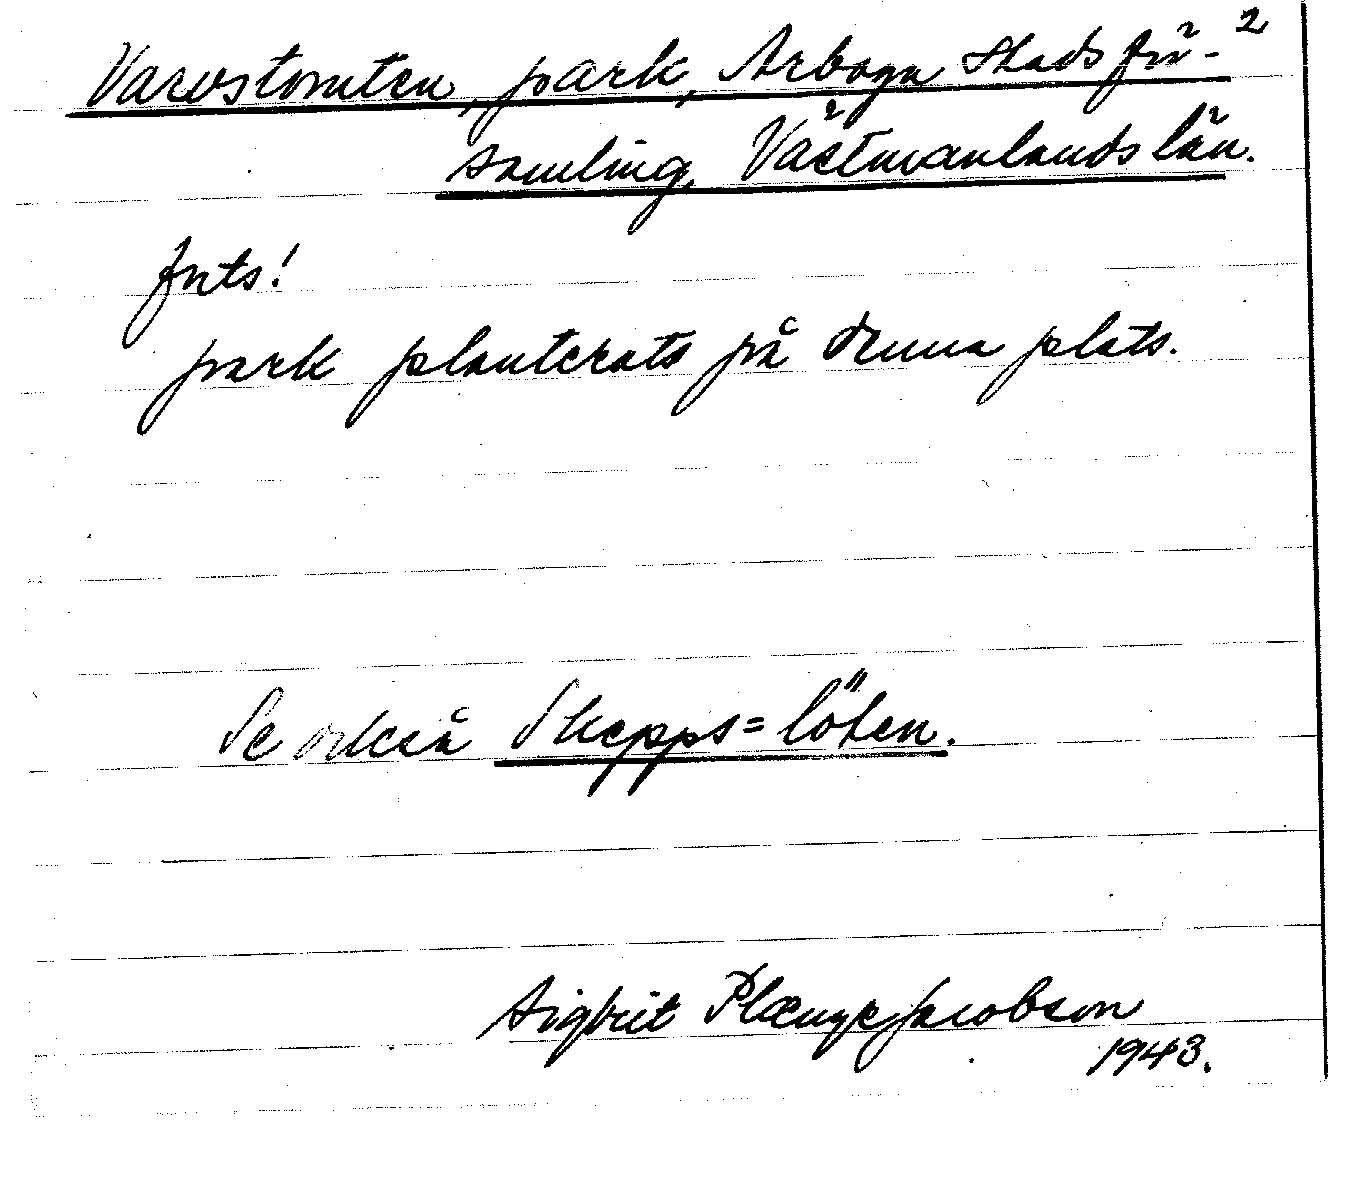 Varvstomten, park, Arboga Stadsför- 2
samling, Västmanlands län.
Forts!
park planterats på denna plats.
Se också Skepps=löten.
Sigbrit Plænge Jacobson
1943.